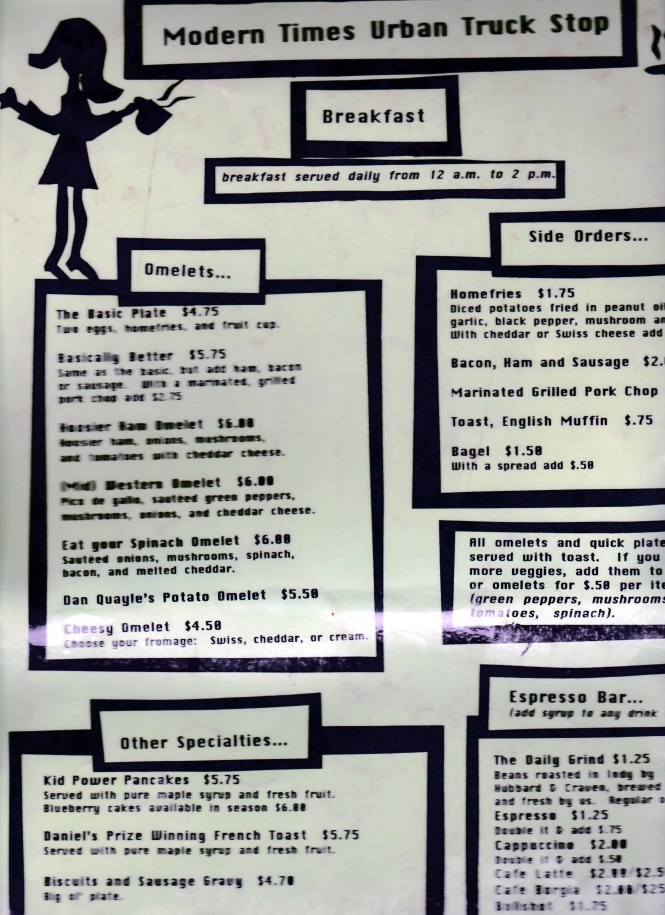 Modern Times Urban Truck Stop
Breakfast
breakfast served daily from 12 a.m. to 2 p.m.
Omelets...
The Basic Plate $4.75
Two eggs, homefries, and fruit cup.
Basically Better $5.75
Same as the basic, but add ham, bacon
or sausage. With a marinated, grilled
pork chop add $2.75
Hoosier Ham Omelet $6.00
Hoosier ham, onions, mushrooms,
and tomatoes with cheddar cheese.
(Mid) Western Omelet $6.00
Pico de gallo, sautéed green peppers,
mushrooms, onions, and cheddar cheese.
Eat your Spinach Omelet $6.00
Sautéed onions, mushrooms, spinach,
bacon, and melted cheddar.
Dan Quayle's Potato Omelet $5.50
Cheesy Omelet $4.50
Choose your fromage: Swiss, cheddar, or cream.
Side Orders...
Homefries $1.75
Diced potatoes fried in peanut oil
garlic, black pepper, mushroom an
With cheddar or Swiss cheese add
Bacon, Ham and Sausage $2.
Marinated Grilled Pork Chop
Toast, English Muffin $.75
Bagel $1.50
With a spread add $.50
All omelets and quick plate
served with toast. If you
more veggies, add them to
or omelets for $.50 per ite
(green peppers, mushrooms
tomatoes, spinach).
Other Specialties...
Kid Power Pancakes $5.75
Served with pure maple syrup and fresh fruit.
Blueberry cakes available in season $6.00
Daniel's Prize Winning French Toast $5.75
Served with pure maple syrup and fresh fruit.
Biscuits and Sausage Gravy $4.70
Big ol' plate.
Espresso Bar...
(add syrup to any drink
The Daily Grind $1.25
Beans roasted in Indy by
Hubbard & Craven, brewed
and fresh by us. Regular o
Espresso $1.25
Double it & add $.75
Cappuccino $2.00
Double it & add $.50
Cafe Latte $2.00/$2.5
Cafe Borgia $2.00/$25
Bullshot $1.75